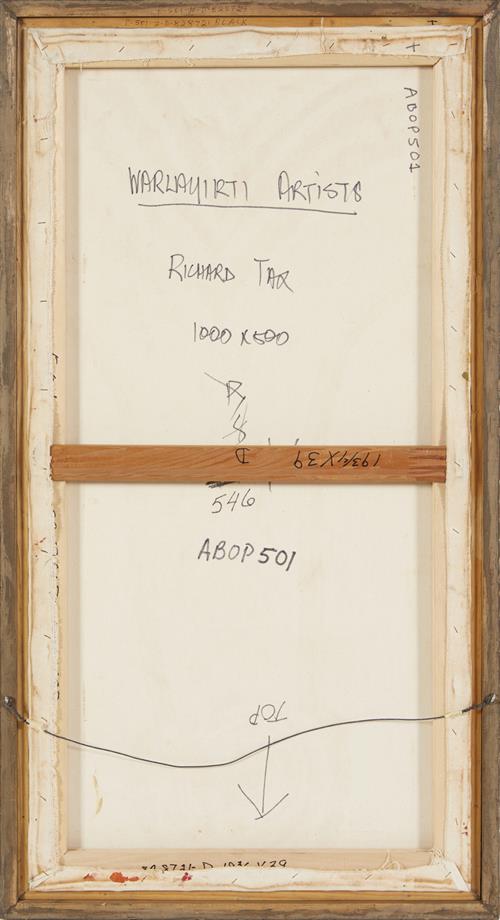 ABOP501
WARLAYIRTI ARTISTS
RICHARD TAX
1000 X 500
R
8
D
19 3/4 X 39
546
ABOP501
TOP